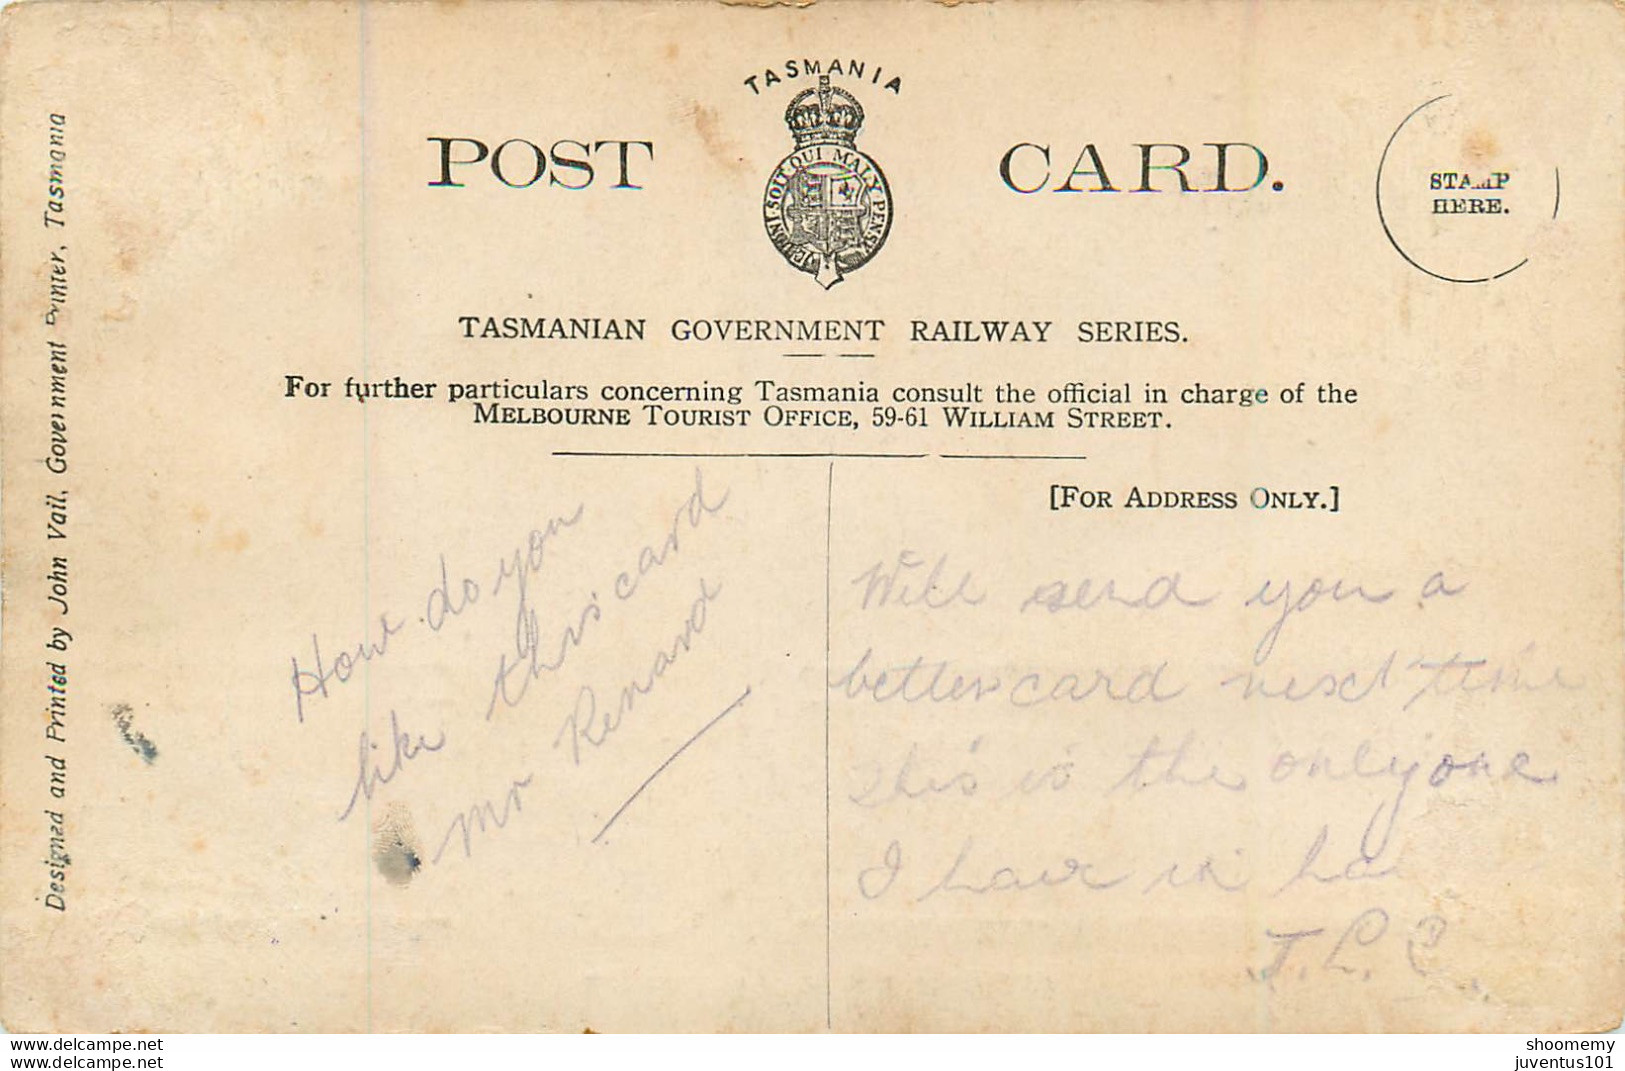 TASMANIA
POST CARD.
SOIT QUI MAL Y PENSE
STAMP
HERE.
TASMANIAN GOVERNMENT RAILWAY SERIES.
For further particulars concerning Tasmania consult the official in charge of the
MELBOURNE TOURIST OFFICE, 59-61 WILLIAM STREET.
[FOR ADDRESS ONLY.]
Designed and Printed by John Vail, Government Printer, Tasmania
How do you
like this card
mr Renard
Will send you a
better card next time
this is the only one
I have in
J. L.
www.delcampe.net
www.delcampe.net
shoomemy
juventus101